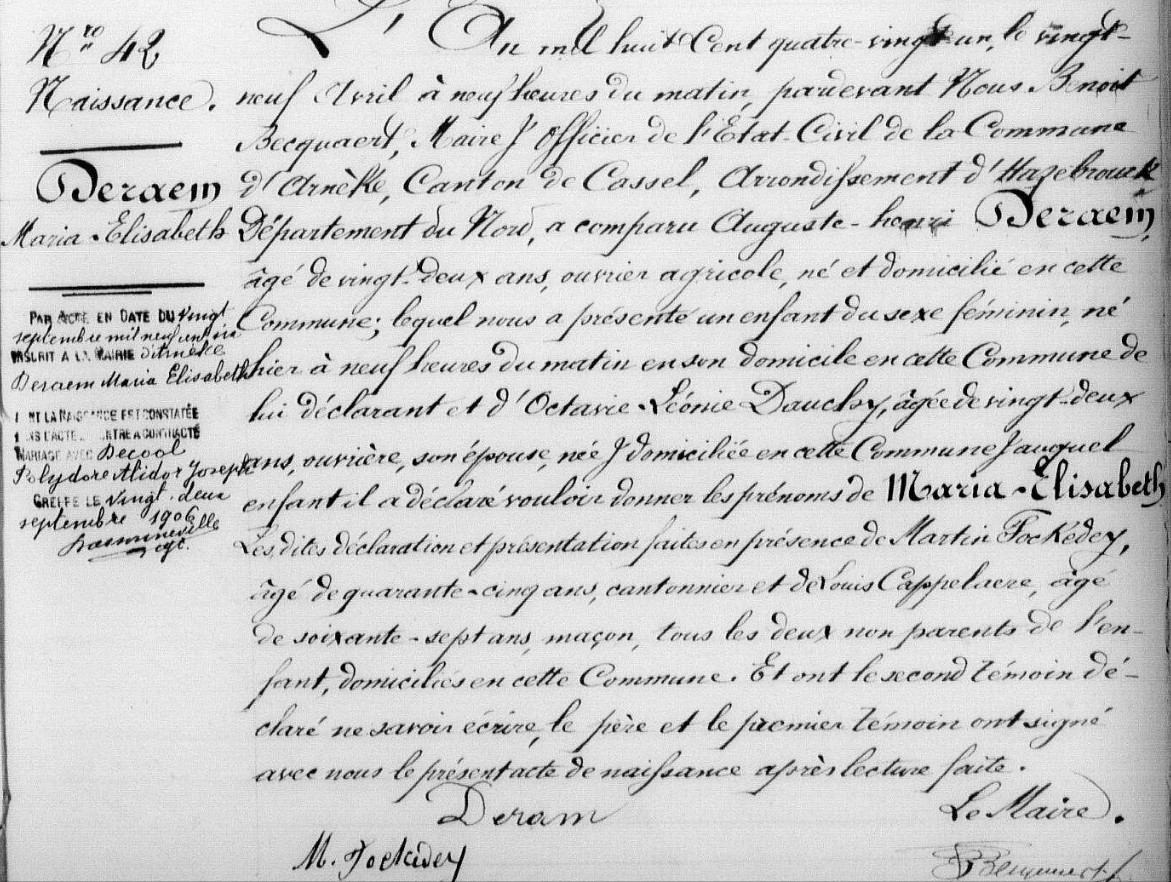 Nro 42
Naissance.
Deraem
Maria-Elisabeth
PAR ACTE EN DATE DU Vingt
septembre mil neuf cent six
INSCRIT A LA MAIRIE d'Arnèke
Deraem Maria Elisabeth
DONT LA NAISSANCE EST CONSTATÉE
DANS L'ACTE CONTRE A CONTRACTÉ
MARIAGE AVEC Decool
Polydore Alidor Joseph
GREFFE LE Vingt-deux
septembre 1906
L'An mil huit Cent quatre-vingt un, le vingt-
neuf Avril à neuf heures du matin, pardevant Nous Benoit
Becquaert, Maire & Officier de l'Etat-Civil de la Commune
d'Arnèke, Canton de Cassel, Arrondissement d'Hazebrouck
Département du Nord, a comparu Auguste-henri Deraem,
âgé de vingt-deux ans, ouvrier agricole, né et domicilié en cette
Commune; lequel nous a présenté un enfant du sexe féminin, né
hier à neuf heures du matin en son domicile en cette Commune de
lui déclarant et d'Octavie-Léonie Dauchy, âgée de vingt-deux
ans, ouvrière, son épouse, née & domiciliée en cette Commune & auquel
enfant il a déclaré vouloir donner les prénoms de Maria-Elisabeth
Les dites déclaration et présentation faites en présence de Martin Fockédey,
âgé de quarante-cinq ans, cantonnier et de Louis Cappelaere, âgé
de soixante-sept ans, maçon, tous les deux non parents de l'en-
fant, domiciliés en cette Commune. Et ont le second témoin dé-
claré ne savoir écrire, le père et le premier témoin ont signé
avec nous le présent acte de naissance après lecture faite.
Deram
Le Maire.
M. Fockedey